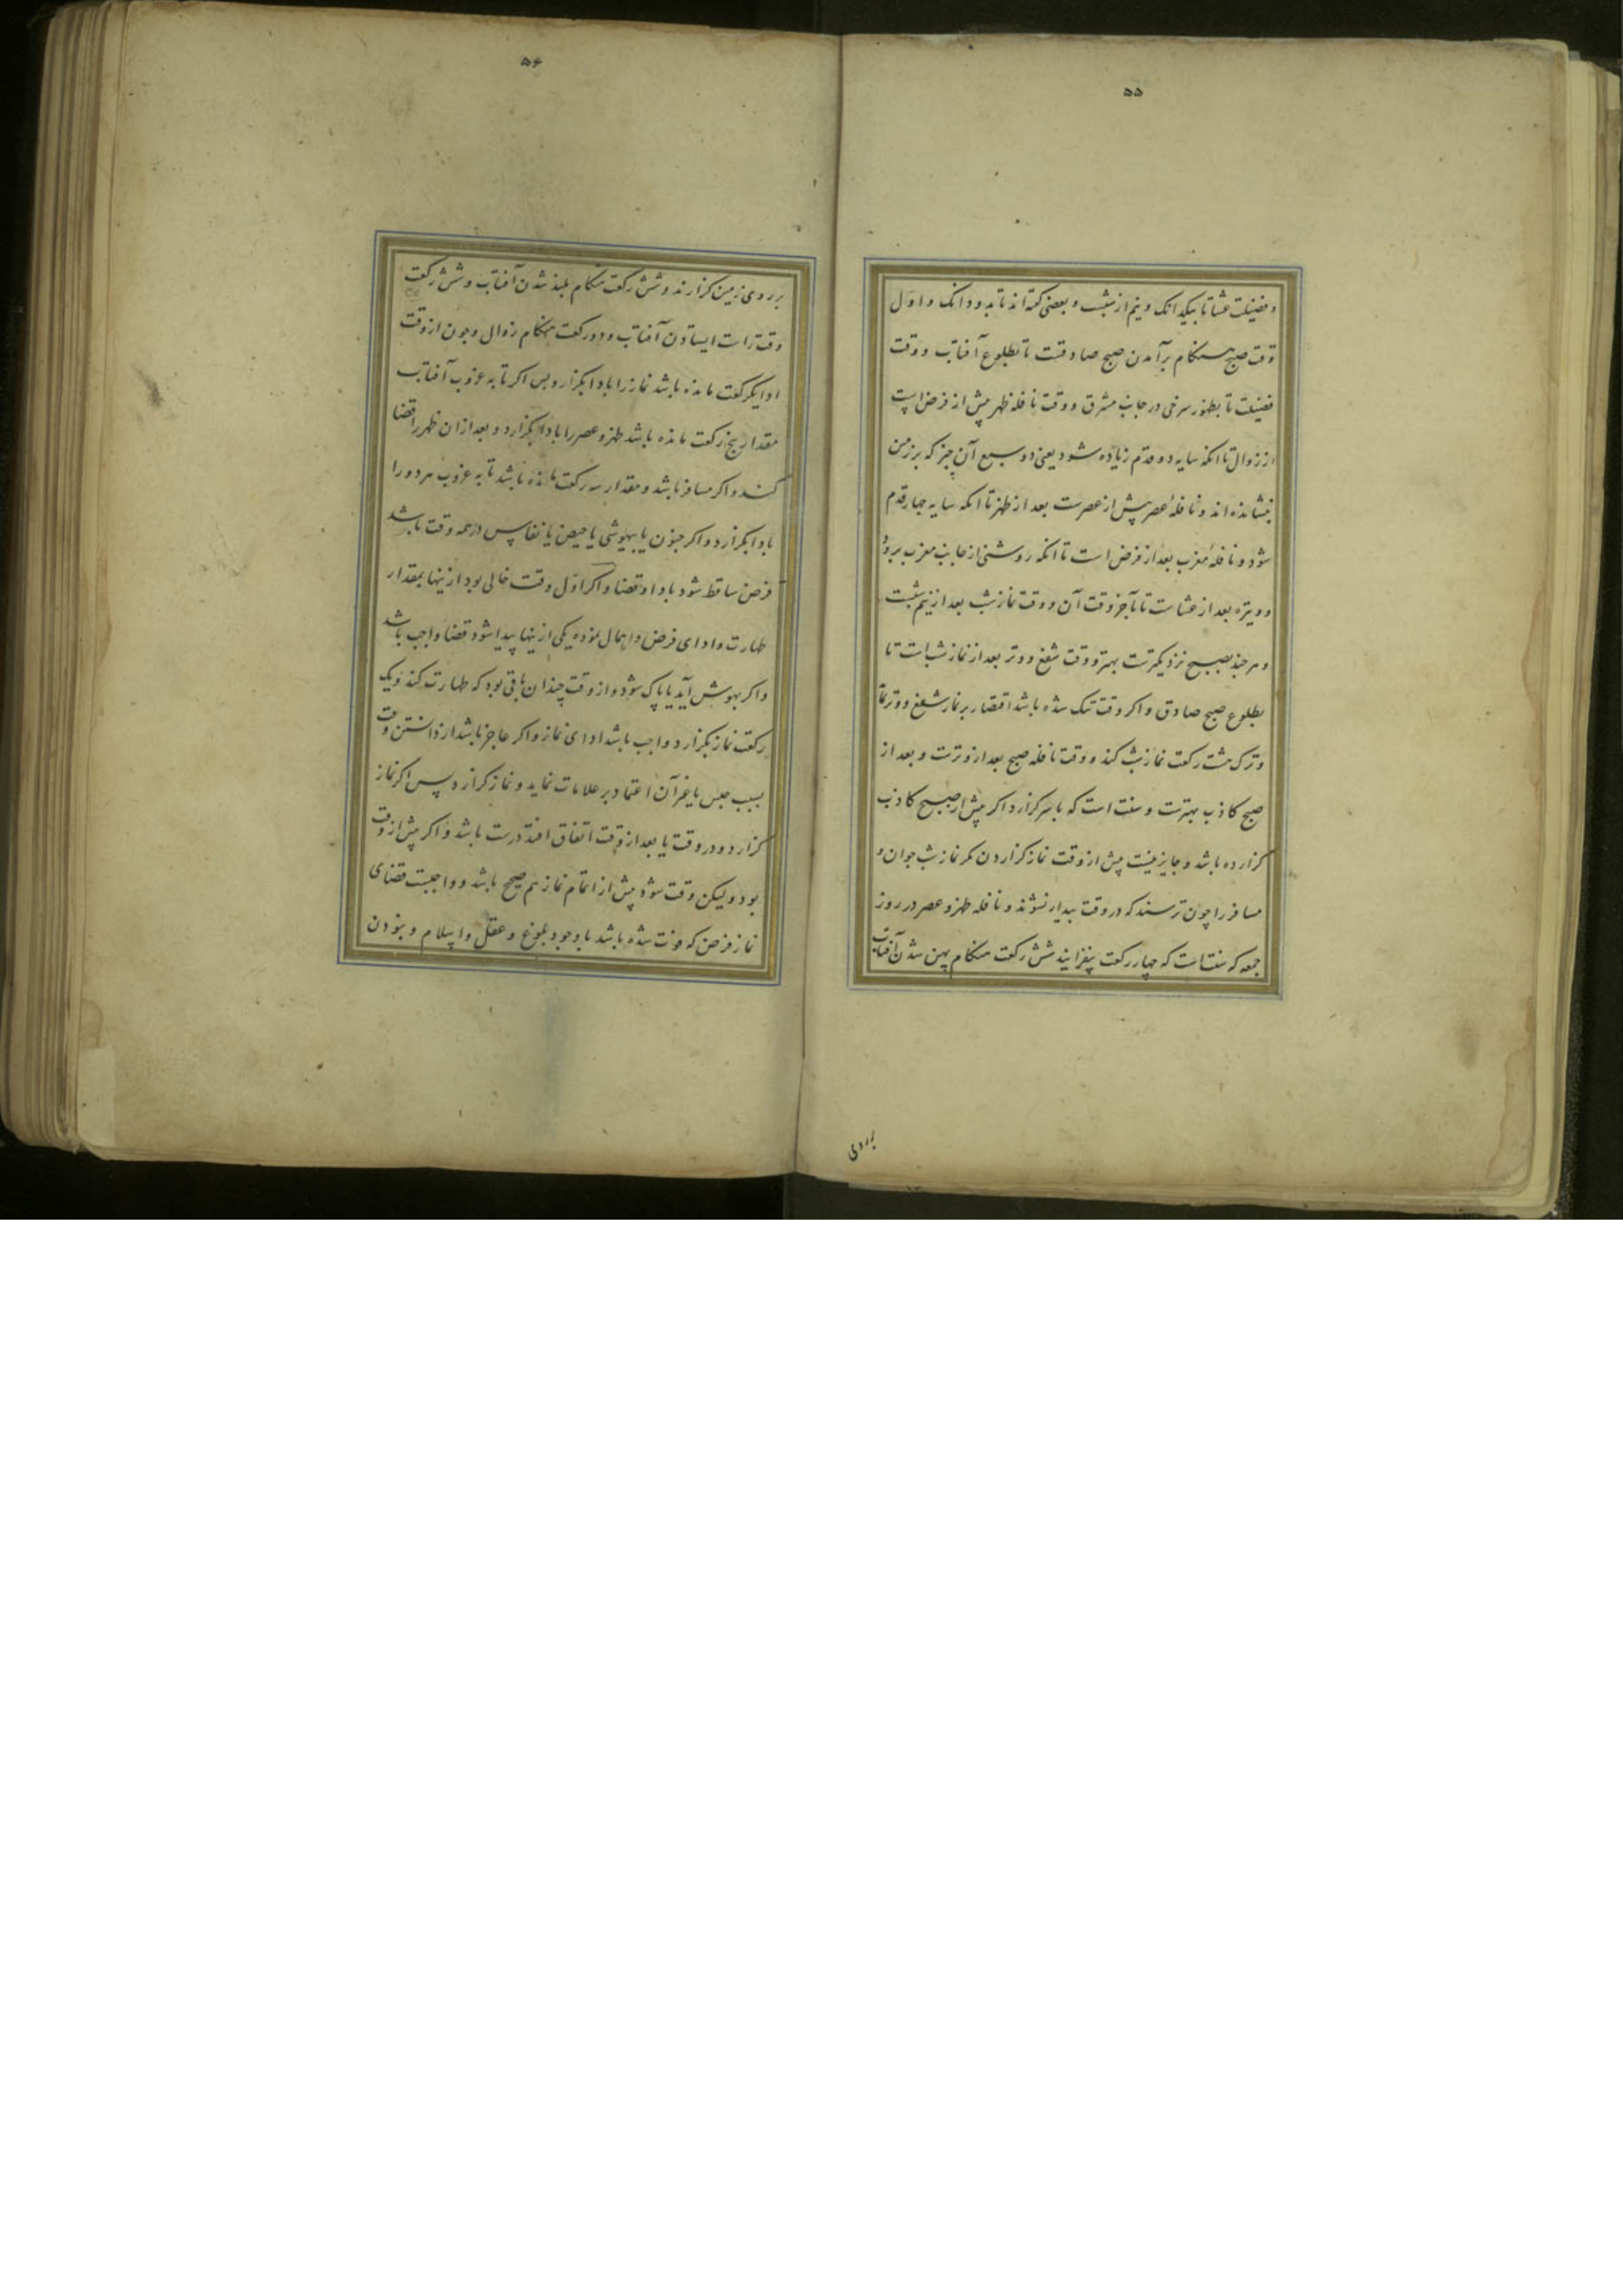 ۵۵
و فضیلت عشا تا بیکدانک و نیم از شبست و بعضی گفته‌اند تا بدو دانک و اول
وقت صبح هنگام برآمدن صبح صادقست تا بطلوع آفتاب و وقت
فضیلت تا بظهور سرخی در جانب مشرق و وقت نافله ظهر پیش از فرض است
از زوال تا انکه سایه دو قدم زیاده شود یعنی دو سبع آن چیز که بر زمین
نشانده‌اند و نافلهٔ عصر پیش از عصرست بعد از ظهر تا انکه سایه چهار قدم
شود و نافلهٔ مغرب بعد از فرض است تا انکه روشنی از جانب مغرب برود
و ویتره بعد از عشاست تا بآخر وقت آن و وقت نماز شب بعد از نیم شبست
و هر چند بصبح نزدیکترست بهتر و وقت شفع و وتر بعد از نماز شب است تا
بطلوع صبح صادق و اکر وقت تنک شده باشد اقتصار بر نماز شفع و وتر نماید
و ترک هشت رکعت نماز شب کند و وقت نافله صبح بعد از وترست و بعد از
صبح کاذب بهترست و سنت است که باز سر کزارد اکر پیش از صبح کاذب
کزارده باشد و جایز نیست پیش از وقت نماز کزاردن مکر نماز شب جوان و
مسافر را چون ترسند که در وقت بیدار نشوند و نافله ظهر و عصر در روز
جمعه که سنت است که چهار رکعت بیفزایند شش رکعت هنکام پهن شدن آفتاب
بر روی
۵۶
بر روی زمین کزارند و شش رکعت هنکام بلند شدن آفتاب و شش رکعت
وقت راست ایستادن آفتاب و دو رکعت هنکام زوال و چون از وقت
ادا یکرکعت مانده باشد نماز را بادا بکزارد پس اکر تا به غروب آفتاب
مقدار پنج رکعت مانده باشد ظهر و عصر را بادا بکزارد و بعد از ان ظهر را قضا
کند و اکر مسافر باشد و مقدار سه رکعت مانده باشد تا به غروب هر دو را
بادا بکزارد و اکر جنون یا بیهوشی یا حیض یا نفاس در همه وقت باشد
فرض ساقط شود بادا و قضا و اکر اول وقت خالی بود ازینها بمقدار
طهارت و ادای فرض و اهمال نموده یکی ازینها پیدا شود قضا واجب باشد
و اکر بهوش آید یا پاک شود و از وقت چندان باقی بود که طهارت کند و یک
رکعت نماز بکزارد واجب باشد ادای نماز و اکر عاجز باشد از دانستن وقت
بسبب حبس یا غیر آن اعتماد بر علامات نماید و نماز کزارد پس اکر نماز
کزارد و در وقت یا بعد از وقت اتفاق افتد درست باشد و اکر پیش از وقت
بود ولیکن وقت شود پیش از اتمام نماز هم صحیح باشد و واجبست قضای
نماز فرض که فوت شده باشد با وجود بلوغ و عقل و اسلام و نبودن